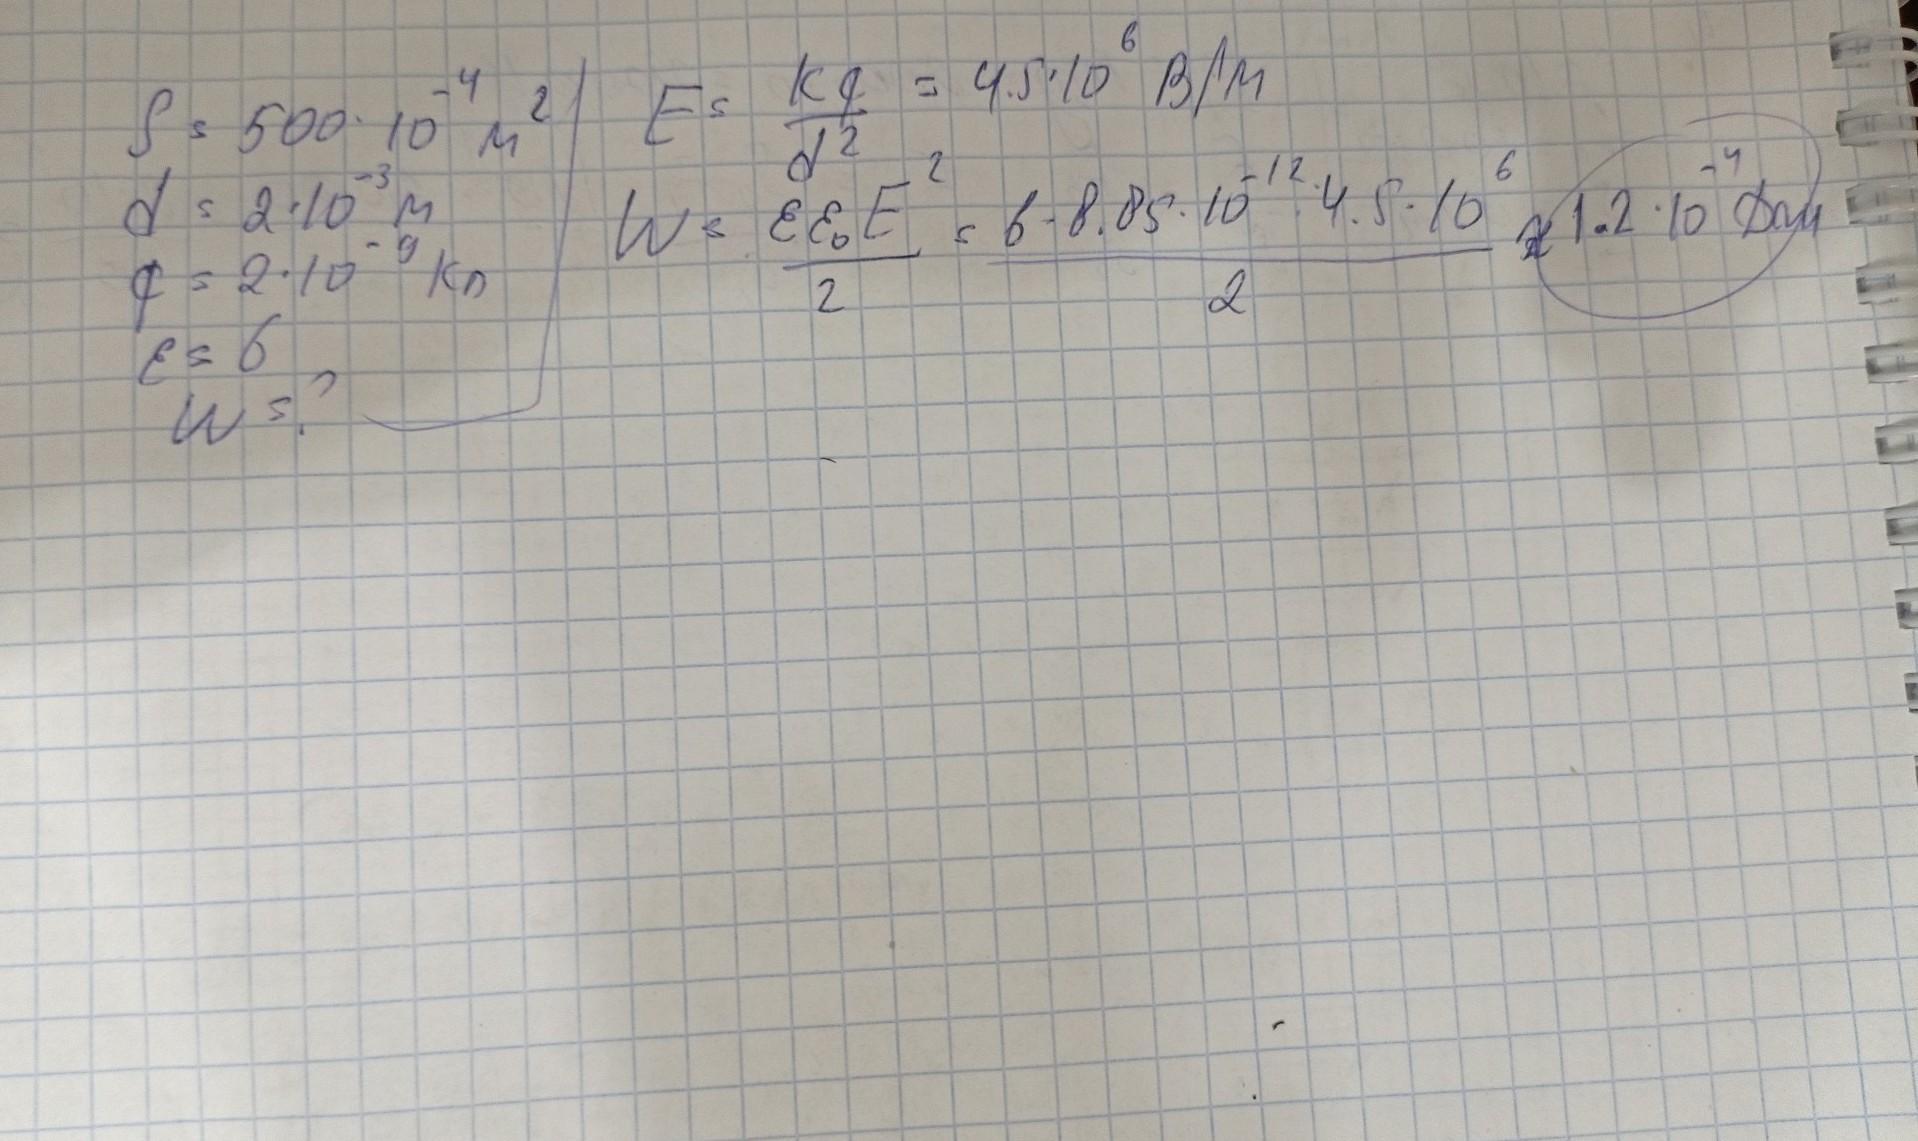 S = 500·10⁻⁴ м²
d = 2·10⁻³ м
q = 2·10⁻⁹ Кл
ε = 6
W = ?
E = kq/d² = 4.5·10⁶ В/м
W = εε₀E²/2 = 6·8.85·10⁻¹²·4.5·10⁶/2 ≈ 1.2·10⁻⁴ Дж